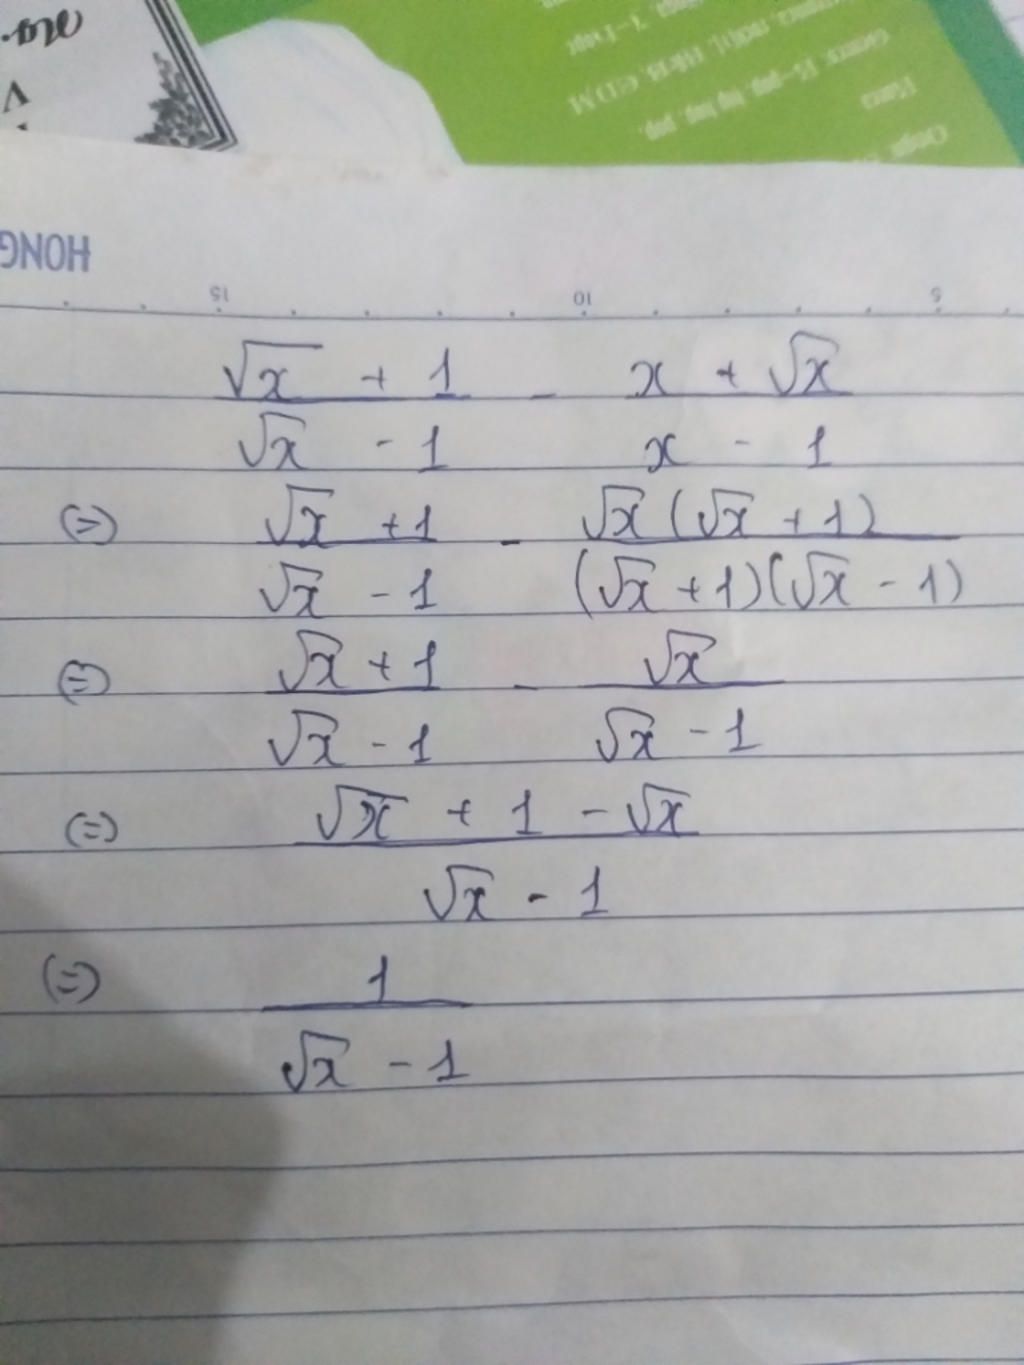 HONG
15 10 5
√x + 1 / √x - 1 - x + √x / x - 1
(=) √x + 1 / √x - 1 - √x (√x + 1) / (√x + 1)(√x - 1)
(=) √x + 1 / √x - 1 - √x / √x - 1
(=) √x + 1 - √x / √x - 1
(=) 1 / √x - 1